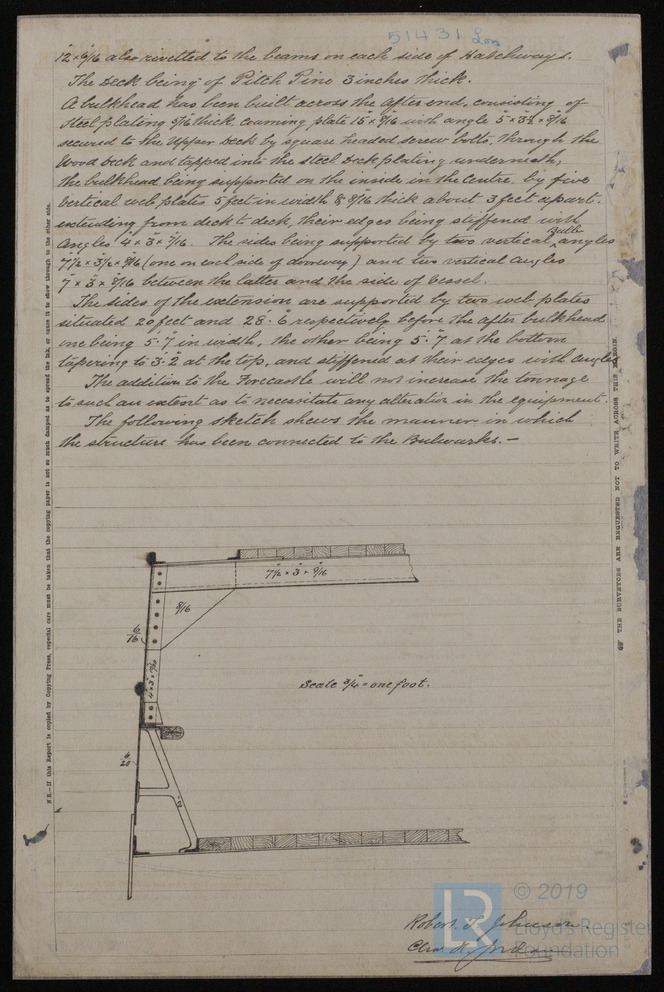 51431 Lon
12" × 6/16 also rivetted to the beams on each side of Hatchways.
The Deck being of Pitch Pine 3 inches thick.
A bulkhead has been built across the after end, consisting of
steel plating 5/16 thick, coaming plate 15" × 9/16 with angle 5" × 3½ × 9/16
secured to the Upper Deck by square headed screw bolts, through the
Wood Deck and tapped into the steel Deck plating underneath,
the bulkhead being supported on the inside in the Centre, by five
Vertical web plates 5 feet in width & 9/16 thick about 3 feet apart.
extending from deck to deck, their edges being stiffened with
Angles 4" × 3" × 7/16. The sides being supported by two vertical Bulb angles
7½ × 3½ × 9/16 (one on each side of doorway) and two vertical angles
7" × 3" × 9/16 between the latter and the side of Vessel.
The sides of the extension are supported by two web plates
situated 20 feet and 28'. 6" respectively before the after bulkhead
one being 5'. 7" in width, the other being 5'. 7" at the bottom
tapering to 3'. 2" at the top, and stiffened at their edges with angles
The addition to the Forecastle will not increase the tonnage
to such an extent as to necessitate any alteration in the equipment.
The following sketch shews the manner in which
the structure has been connected to the Bulwarks. —
7½ × 3" × 9/16
9/16
6/16
Scale ¾" = one foot.
Robert T. Johnson.
© 2019
Lloyd's Register
Foundation
LR
N.B.—If this Report is copied by Copying Press, especial care must be taken that the copying paper is not so much damped as to spread the ink, or cause it to show through to the other side.
THE SURVEYORS ARE REQUESTED NOT TO WRITE ACROSS THIS MARGIN.